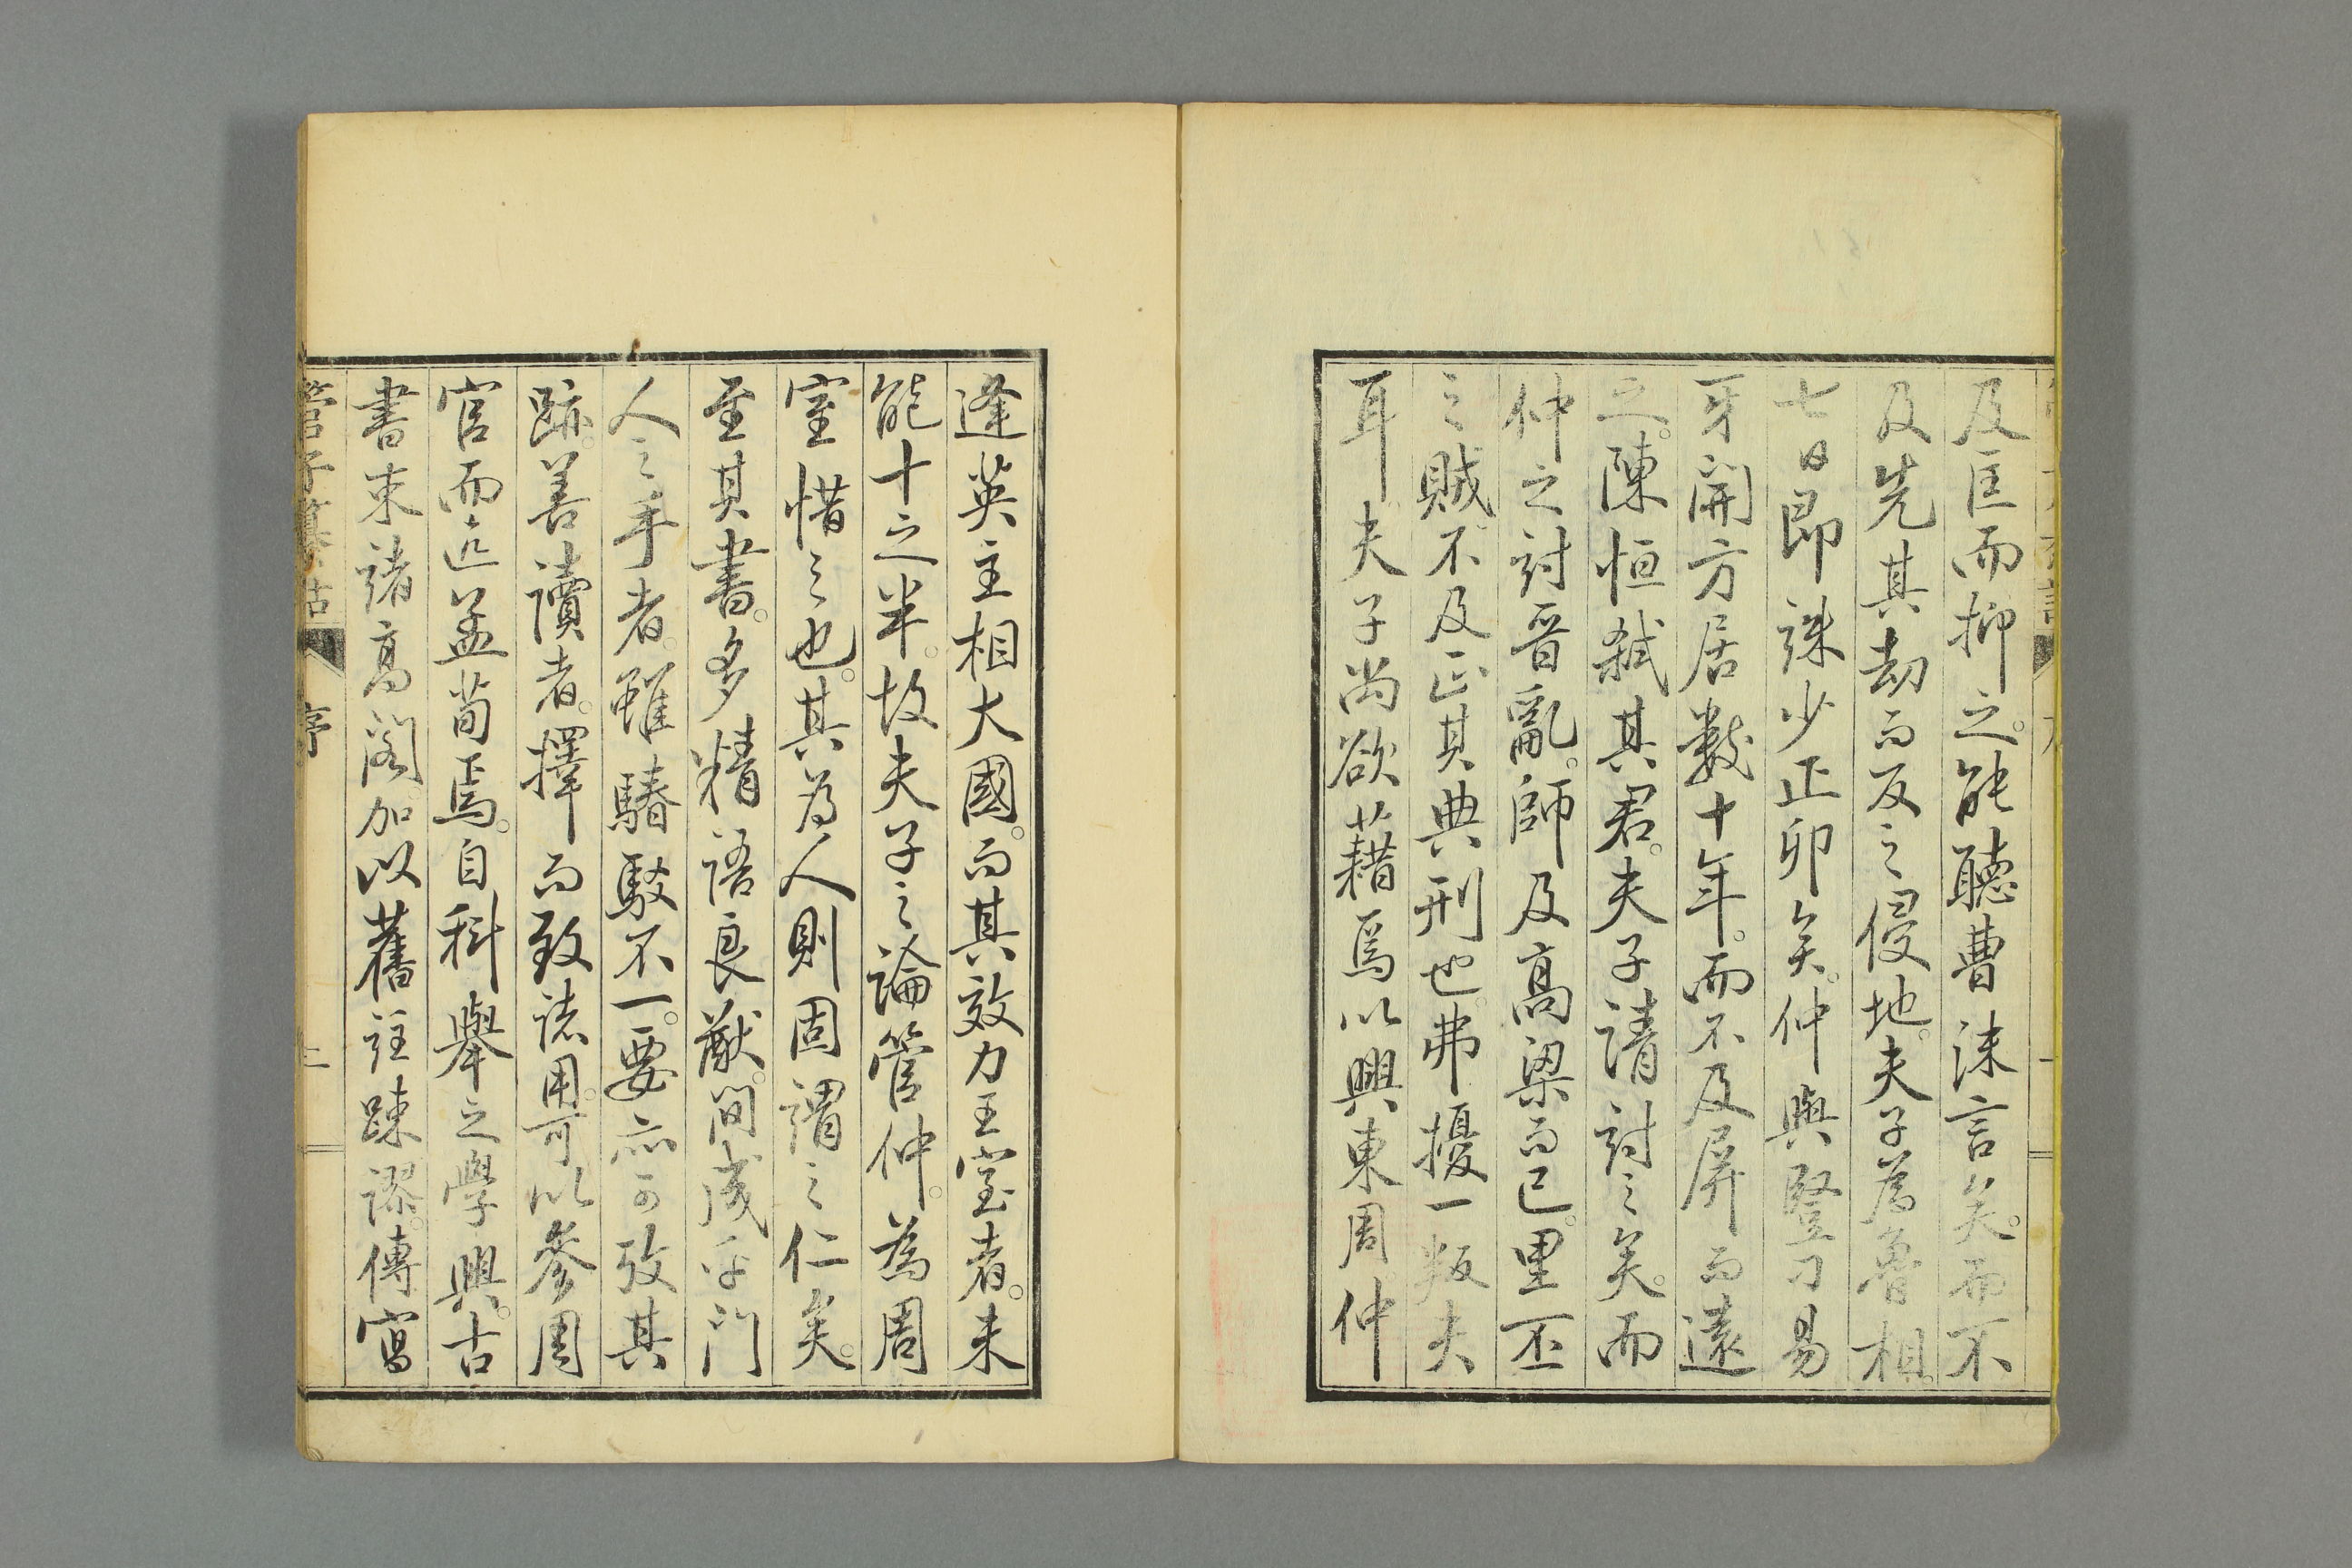 及匡而抑之。能聽曹沫言矣。而不
及先其劫而反之侵地。夫子為魯相。
七日即誅少正卯矣。仲與豎刁易
牙開方居數十年。而不及屏而遠
之。陳恒弒其君。夫子請討之矣。而
仲之討晉亂。師及高梁而已。里丕
之賊。不及正其典刑也。弗擾一叛夫
耳夫子尚欲藉焉以興東周。仲
逢英主相大國。而其效力王室者。未
能十之半。故夫子之論管仲。為周
室惜之也。其為人則固謂之仁矣。
至其書。多精語良猷。間或乎門
人之手者。雖驕駁不一。要亦可攷其
跡。善讀者。擇而致諸用。可以參周
官而近孟荀焉。自科舉之學興。古
書束諸高閣。加以舊註疎謬。傳寫
管子纂詁 序 二